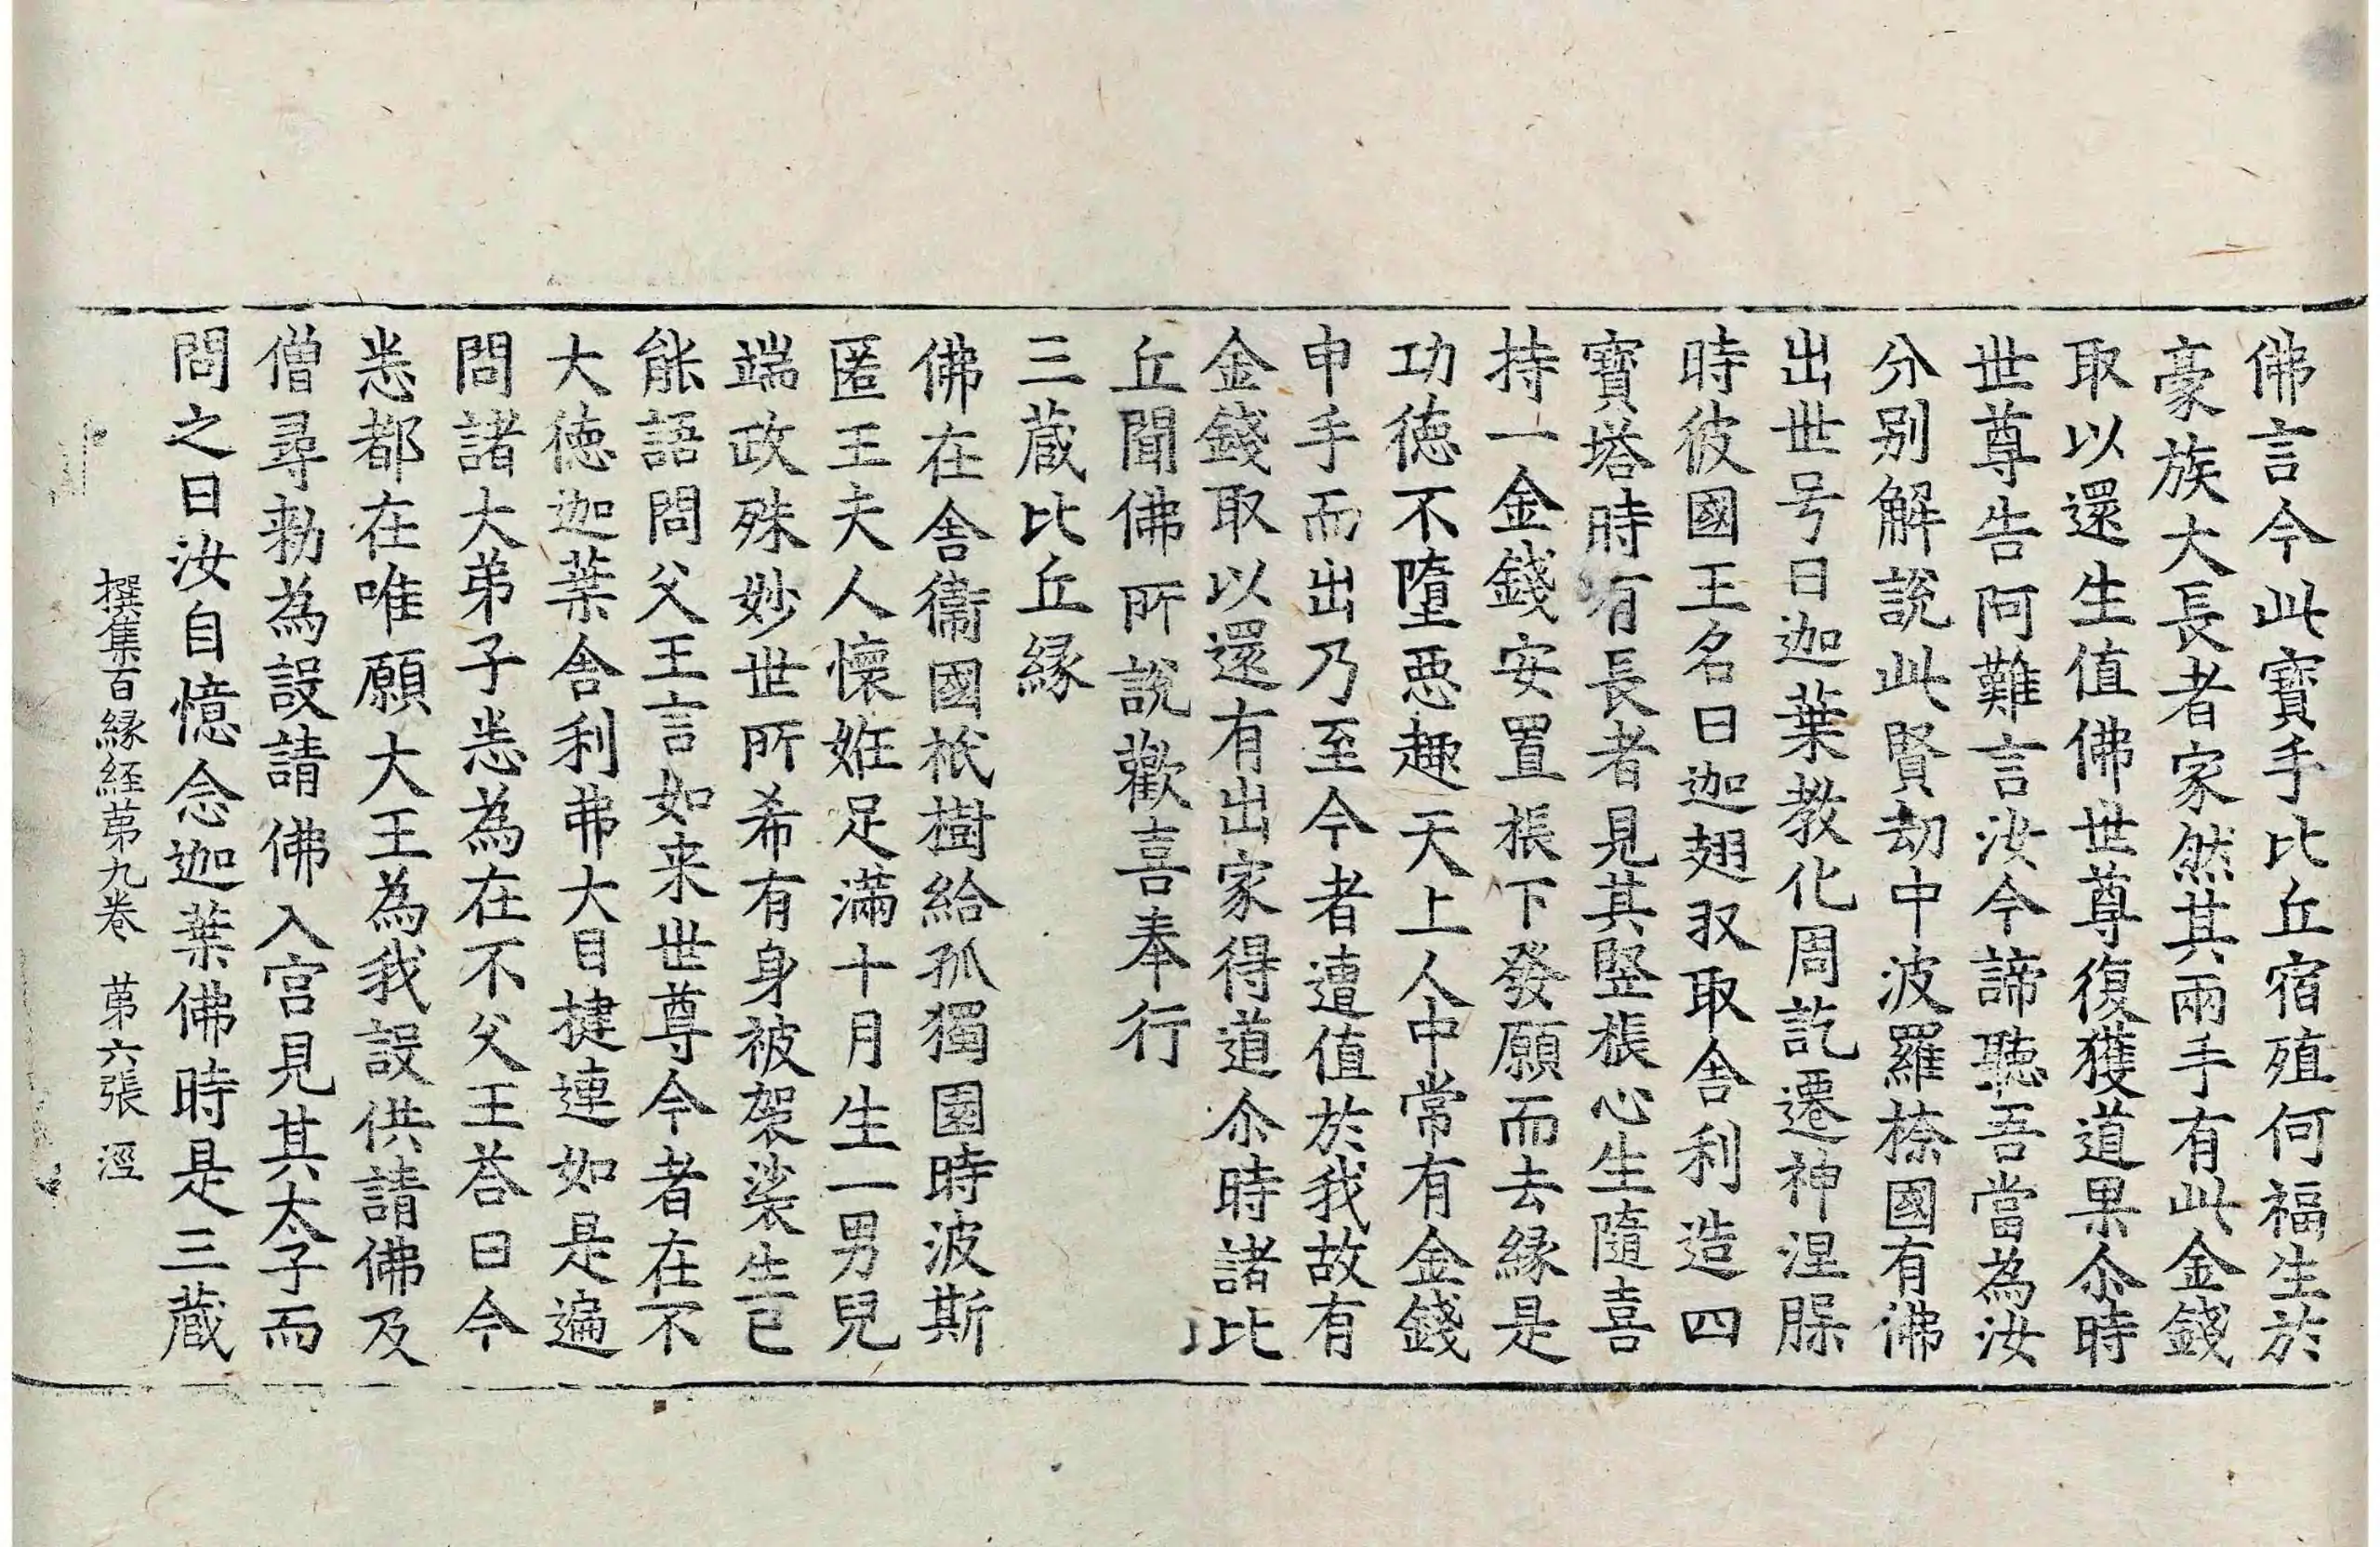 佛言今此寶手比丘宿殖何福生於
豪族大長者家然其兩手有此金錢
取以還生值佛世尊復獲道果尒時
世尊告阿難言汝今諦聽吾當為汝
分別解說此賢劫中波羅㮈國有佛
出世号曰迦葉教化周訖遷神涅槃
時彼國王名曰迦翅収取舍利造四
寶塔時有長者見其竪棖心生隨喜
持一金錢安置棖下發願而去緣是
功徳不墮惡趣天上人中常有金錢
申手而出乃至今者遭值於我故有
金錢取以還有出家得道尒時諸比
丘聞佛所說歡喜奉行
三蔵比丘縁
佛在舍衞國祇樹給孤獨園時波斯
匿王夫人懷姙足滿十月生一男兒
端政殊妙世所希有身被袈裟生已
能語問父王言如来世尊今者在不
大徳迦葉舍利弗大目揵連如是遍
問諸大弟子悉為在不父王荅曰今
悉都在唯願大王為我設供請佛及
僧尋勑為設請佛入宮見其太子而
問之曰汝自憶念迦葉佛時是三蔵
撰集百縁經苐九卷 苐六張 涇